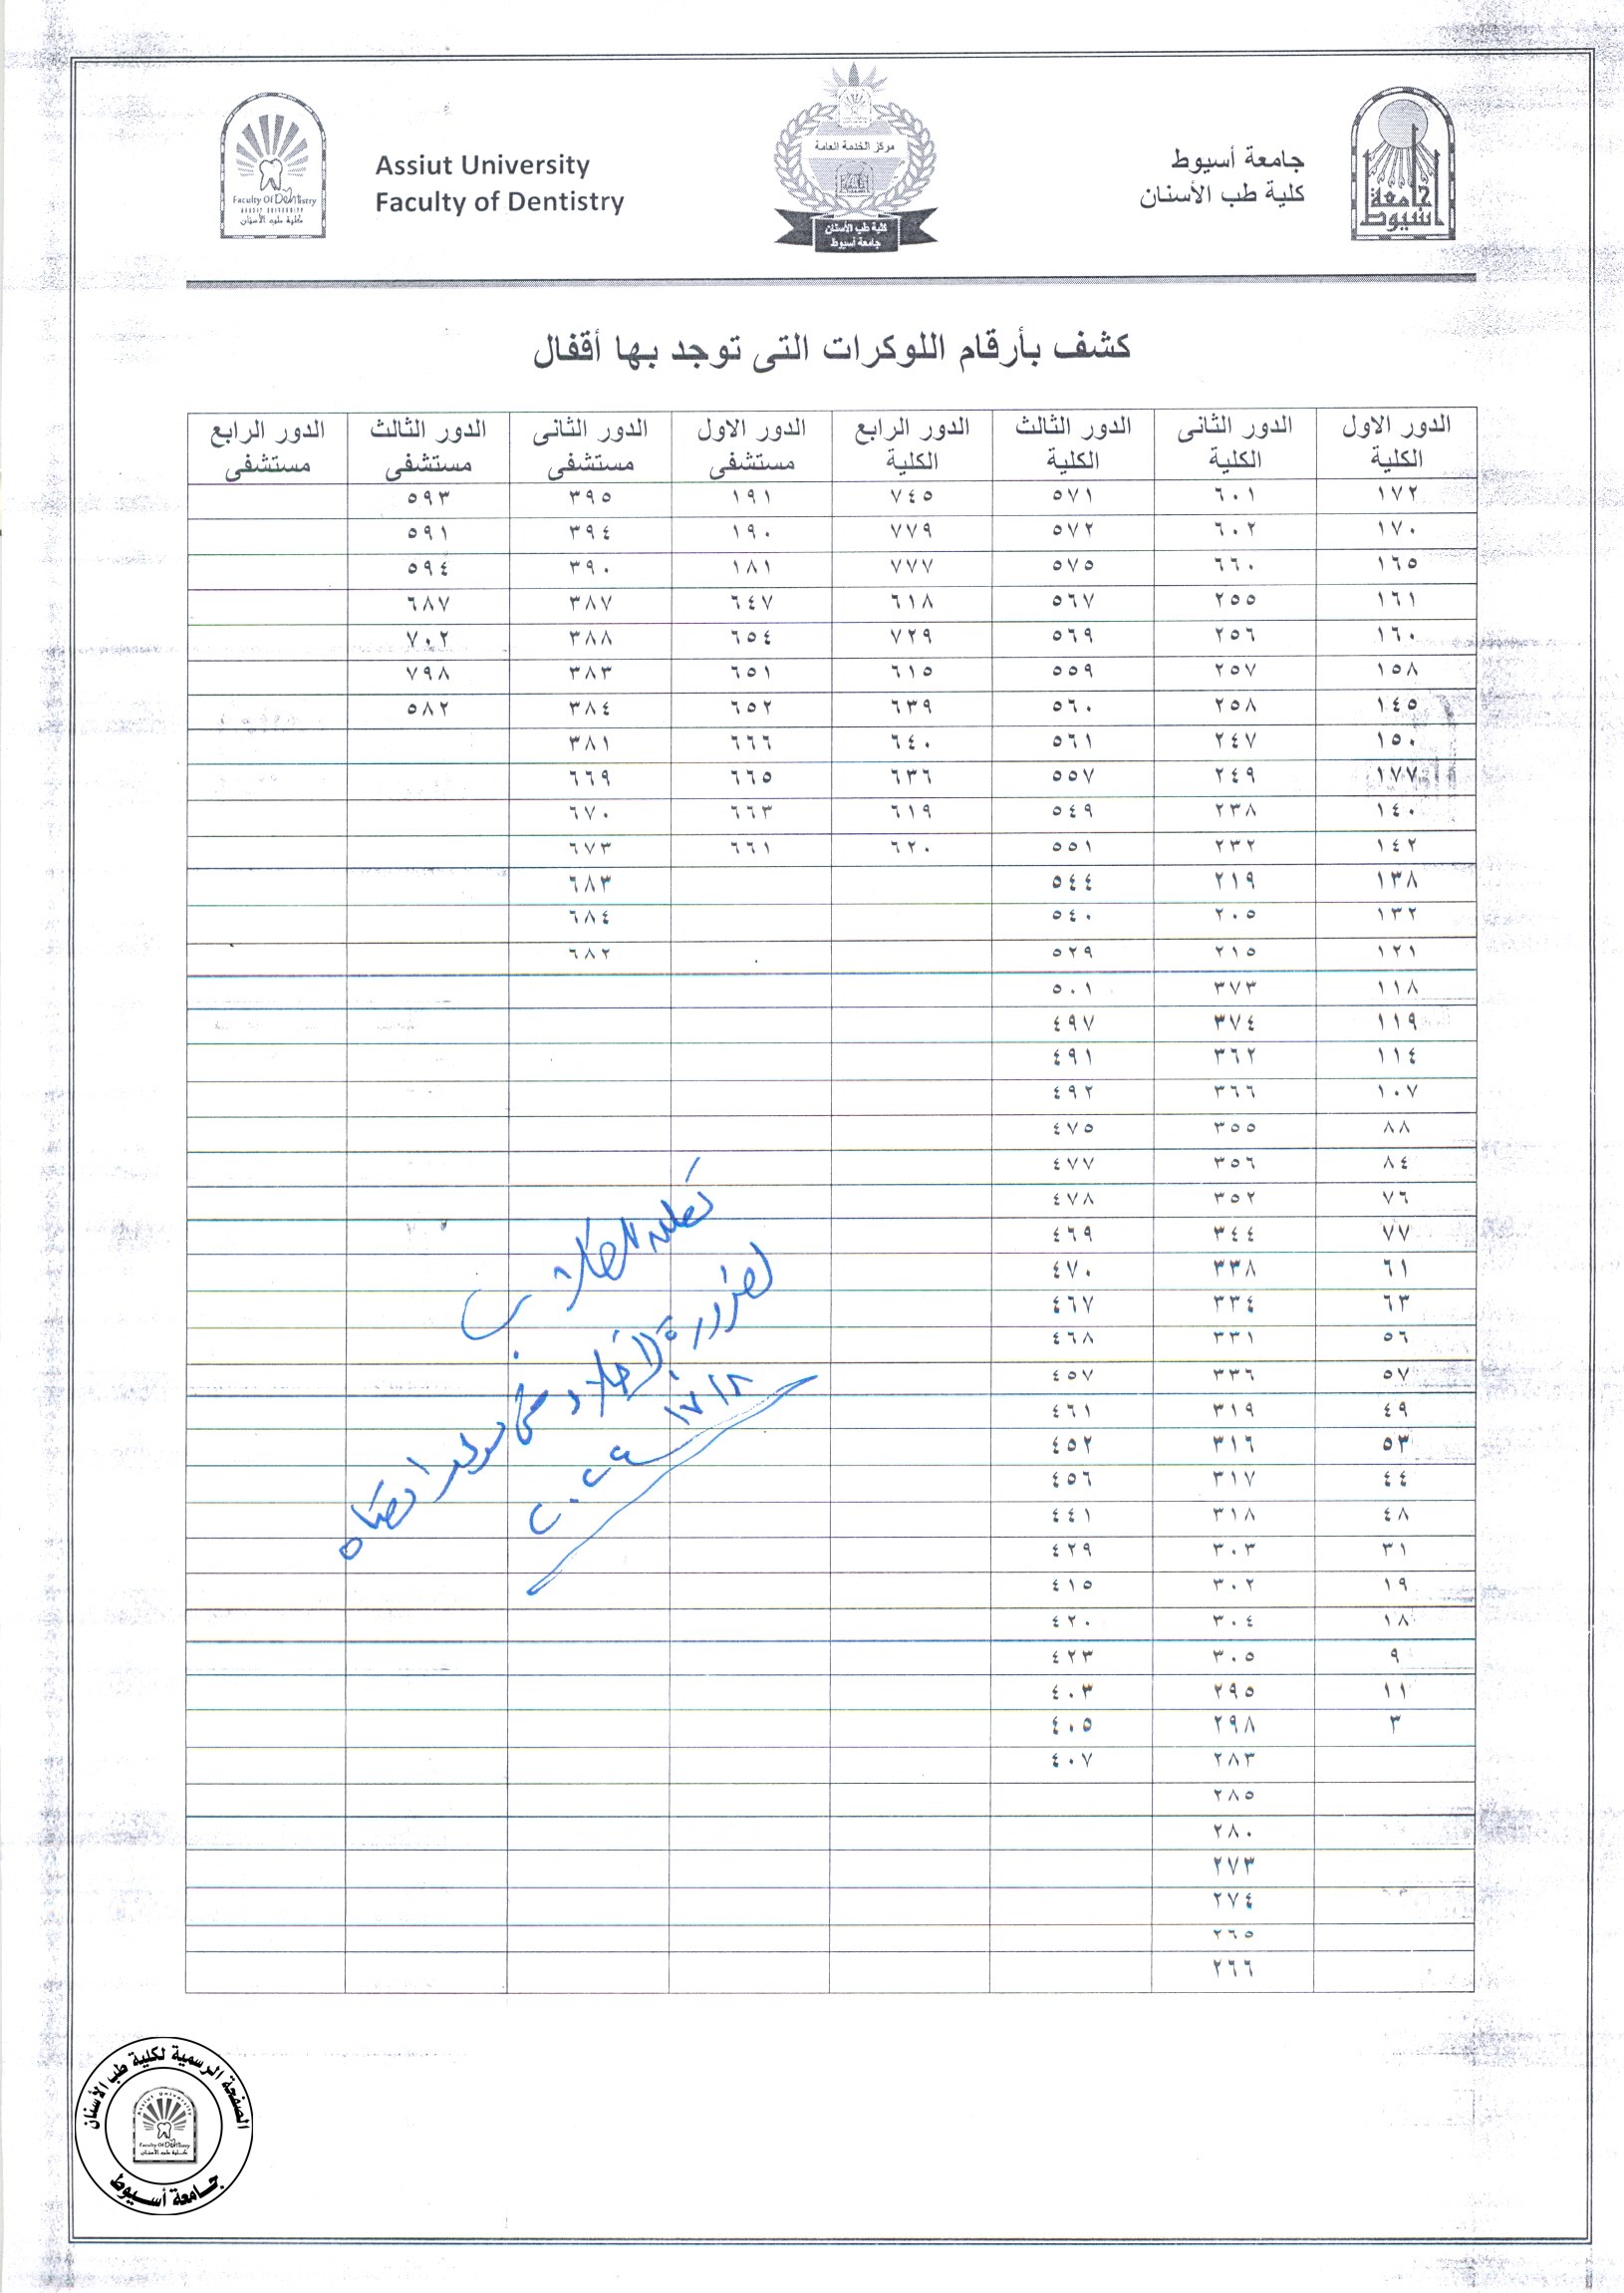 جامعة أسيوط
كلية طب الأسنان
مركز الخدمة العامة
كلية طب الأسنان
جامعة أسيوط
Assiut University
Faculty of Dentistry
Faculty Of Dentistry
ASSIUT UNIVERSITY
كلية طب الأسنان
جامعة أسيوط
كشف بأرقام اللوكرات التى توجد بها أقفال
الدور الاول الكلية الدور الثانى الكلية الدور الثالث الكلية الدور الرابع الكلية الدور الاول مستشفى الدور الثانى مستشفى الدور الثالث مستشفى الدور الرابع مستشفى
١٧٢ ٦٠١ ٥٧١ ٧٤٥ ١٩١ ٣٩٥ ٥٩٣
١٧٠ ٦٠٢ ٥٧٢ ٧٧٩ ١٩٠ ٣٩٤ ٥٩١
١٦٥ ٦٦٠ ٥٧٥ ٧٧٧ ١٨١ ٣٩٠ ٥٩٤
١٦١ ٢٥٥ ٥٦٧ ٦١٨ ٦٤٧ ٣٨٧ ٦٨٧
١٦٠ ٢٥٦ ٥٦٩ ٧٢٩ ٦٥٤ ٣٨٨ ٧٠٢
١٥٨ ٢٥٧ ٥٥٩ ٦١٥ ٦٥١ ٣٨٣ ٧٩٨
١٤٥ ٢٥٨ ٥٦٠ ٦٣٩ ٦٥٢ ٣٨٤ ٥٨٢
١٥٠ ٢٤٧ ٥٦١ ٦٤٠ ٦٦٦ ٣٨١
١٧٧ ٢٤٩ ٥٥٧ ٦٣٦ ٦٦٥ ٦٦٩
١٤٠ ٢٣٨ ٥٤٩ ٦١٩ ٦٦٣ ٦٧٠
١٤٢ ٢٣٢ ٥٥١ ٦٢٠ ٦٦١ ٦٧٣
١٣٨ ٢١٩ ٥٤٤ ٦٨٣
١٣٢ ٢٠٥ ٥٤٠ ٦٨٤
١٢١ ٢١٥ ٥٢٩ ٦٨٢
١١٨ ٣٧٣ ٥٠١
١١٩ ٣٧٤ ٤٩٧
١١٤ ٣٦٢ ٤٩١
١٠٧ ٣٦٦ ٤٩٢
٨٨ ٣٥٥ ٤٧٥
٨٤ ٣٥٦ ٤٧٧
٧٦ ٣٥٢ ٤٧٨
٧٧ ٣٤٤ ٤٦٩
٦١ ٣٣٨ ٤٧٠
٦٣ ٣٣٤ ٤٦٧
٥٦ ٣٣١ ٤٦٨
٥٧ ٣٣٦ ٤٥٧
٤٩ ٣١٩ ٤٦١
٥٣ ٣١٦ ٤٥٢
٤٤ ٣١٧ ٤٥٦
٤٨ ٣١٨ ٤٤١
٣١ ٣٠٣ ٤٢٩
١٩ ٣٠٢ ٤١٥
١٨ ٣٠٤ ٤٢٠
٩ ٣٠٥ ٤٢٣
١١ ٢٩٥ ٤٠٣
٣ ٢٩٨ ٤٠٥
٢٨٣ ٤٠٧
٢٨٥
٢٨٠
٢٧٣
٢٧٤
٢٦٥
٢٦٦
لضرورة
الصفحة الرسمية لكلية طب الأسنان
Assiut University
Faculty Of Dentistry
كلية طب الأسنان
جامعة أسيوط